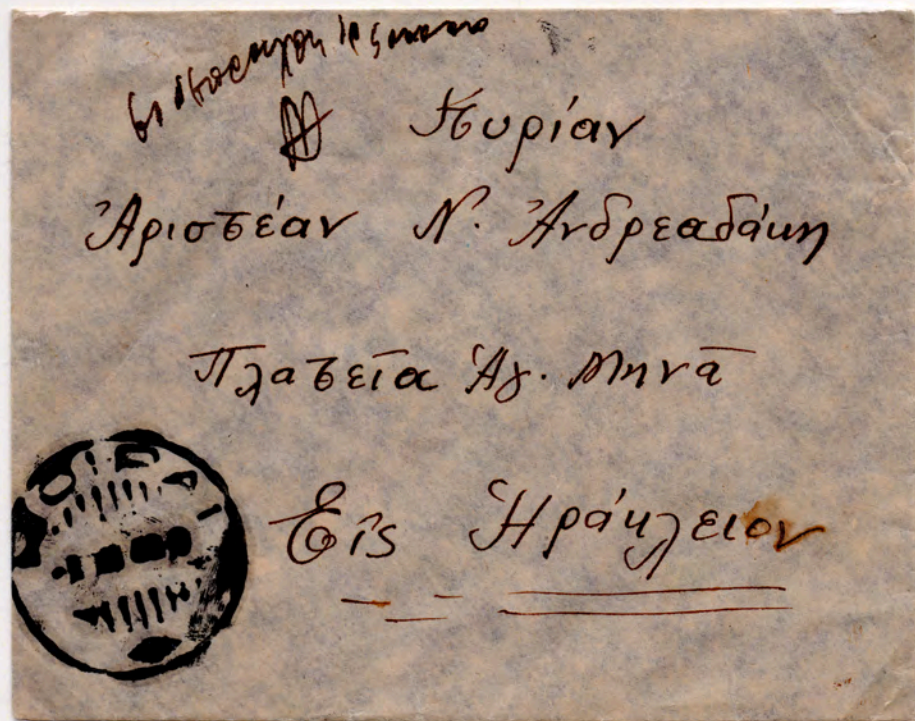 Κυρίαν
Ἀριστέαν Ν. Ἀνδρεαδάκη
Πλατεῖα Ἁγ. Μηνᾶ
Εἰς Ἡράκλειον